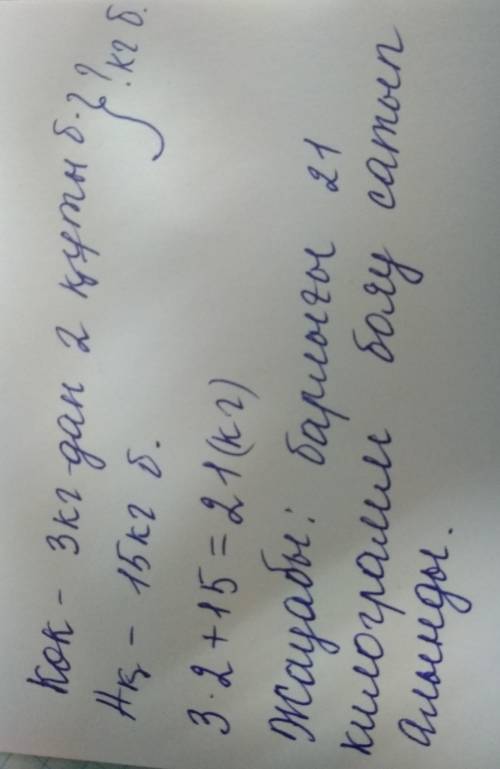 Кок - 3кг-дан 2 қуты б. ? } ? кг б.
Ақ - 15кг б.
3·2+15=21(кг)
Жауабы: барлығы 21
килограмм бояу сатып
алынды.